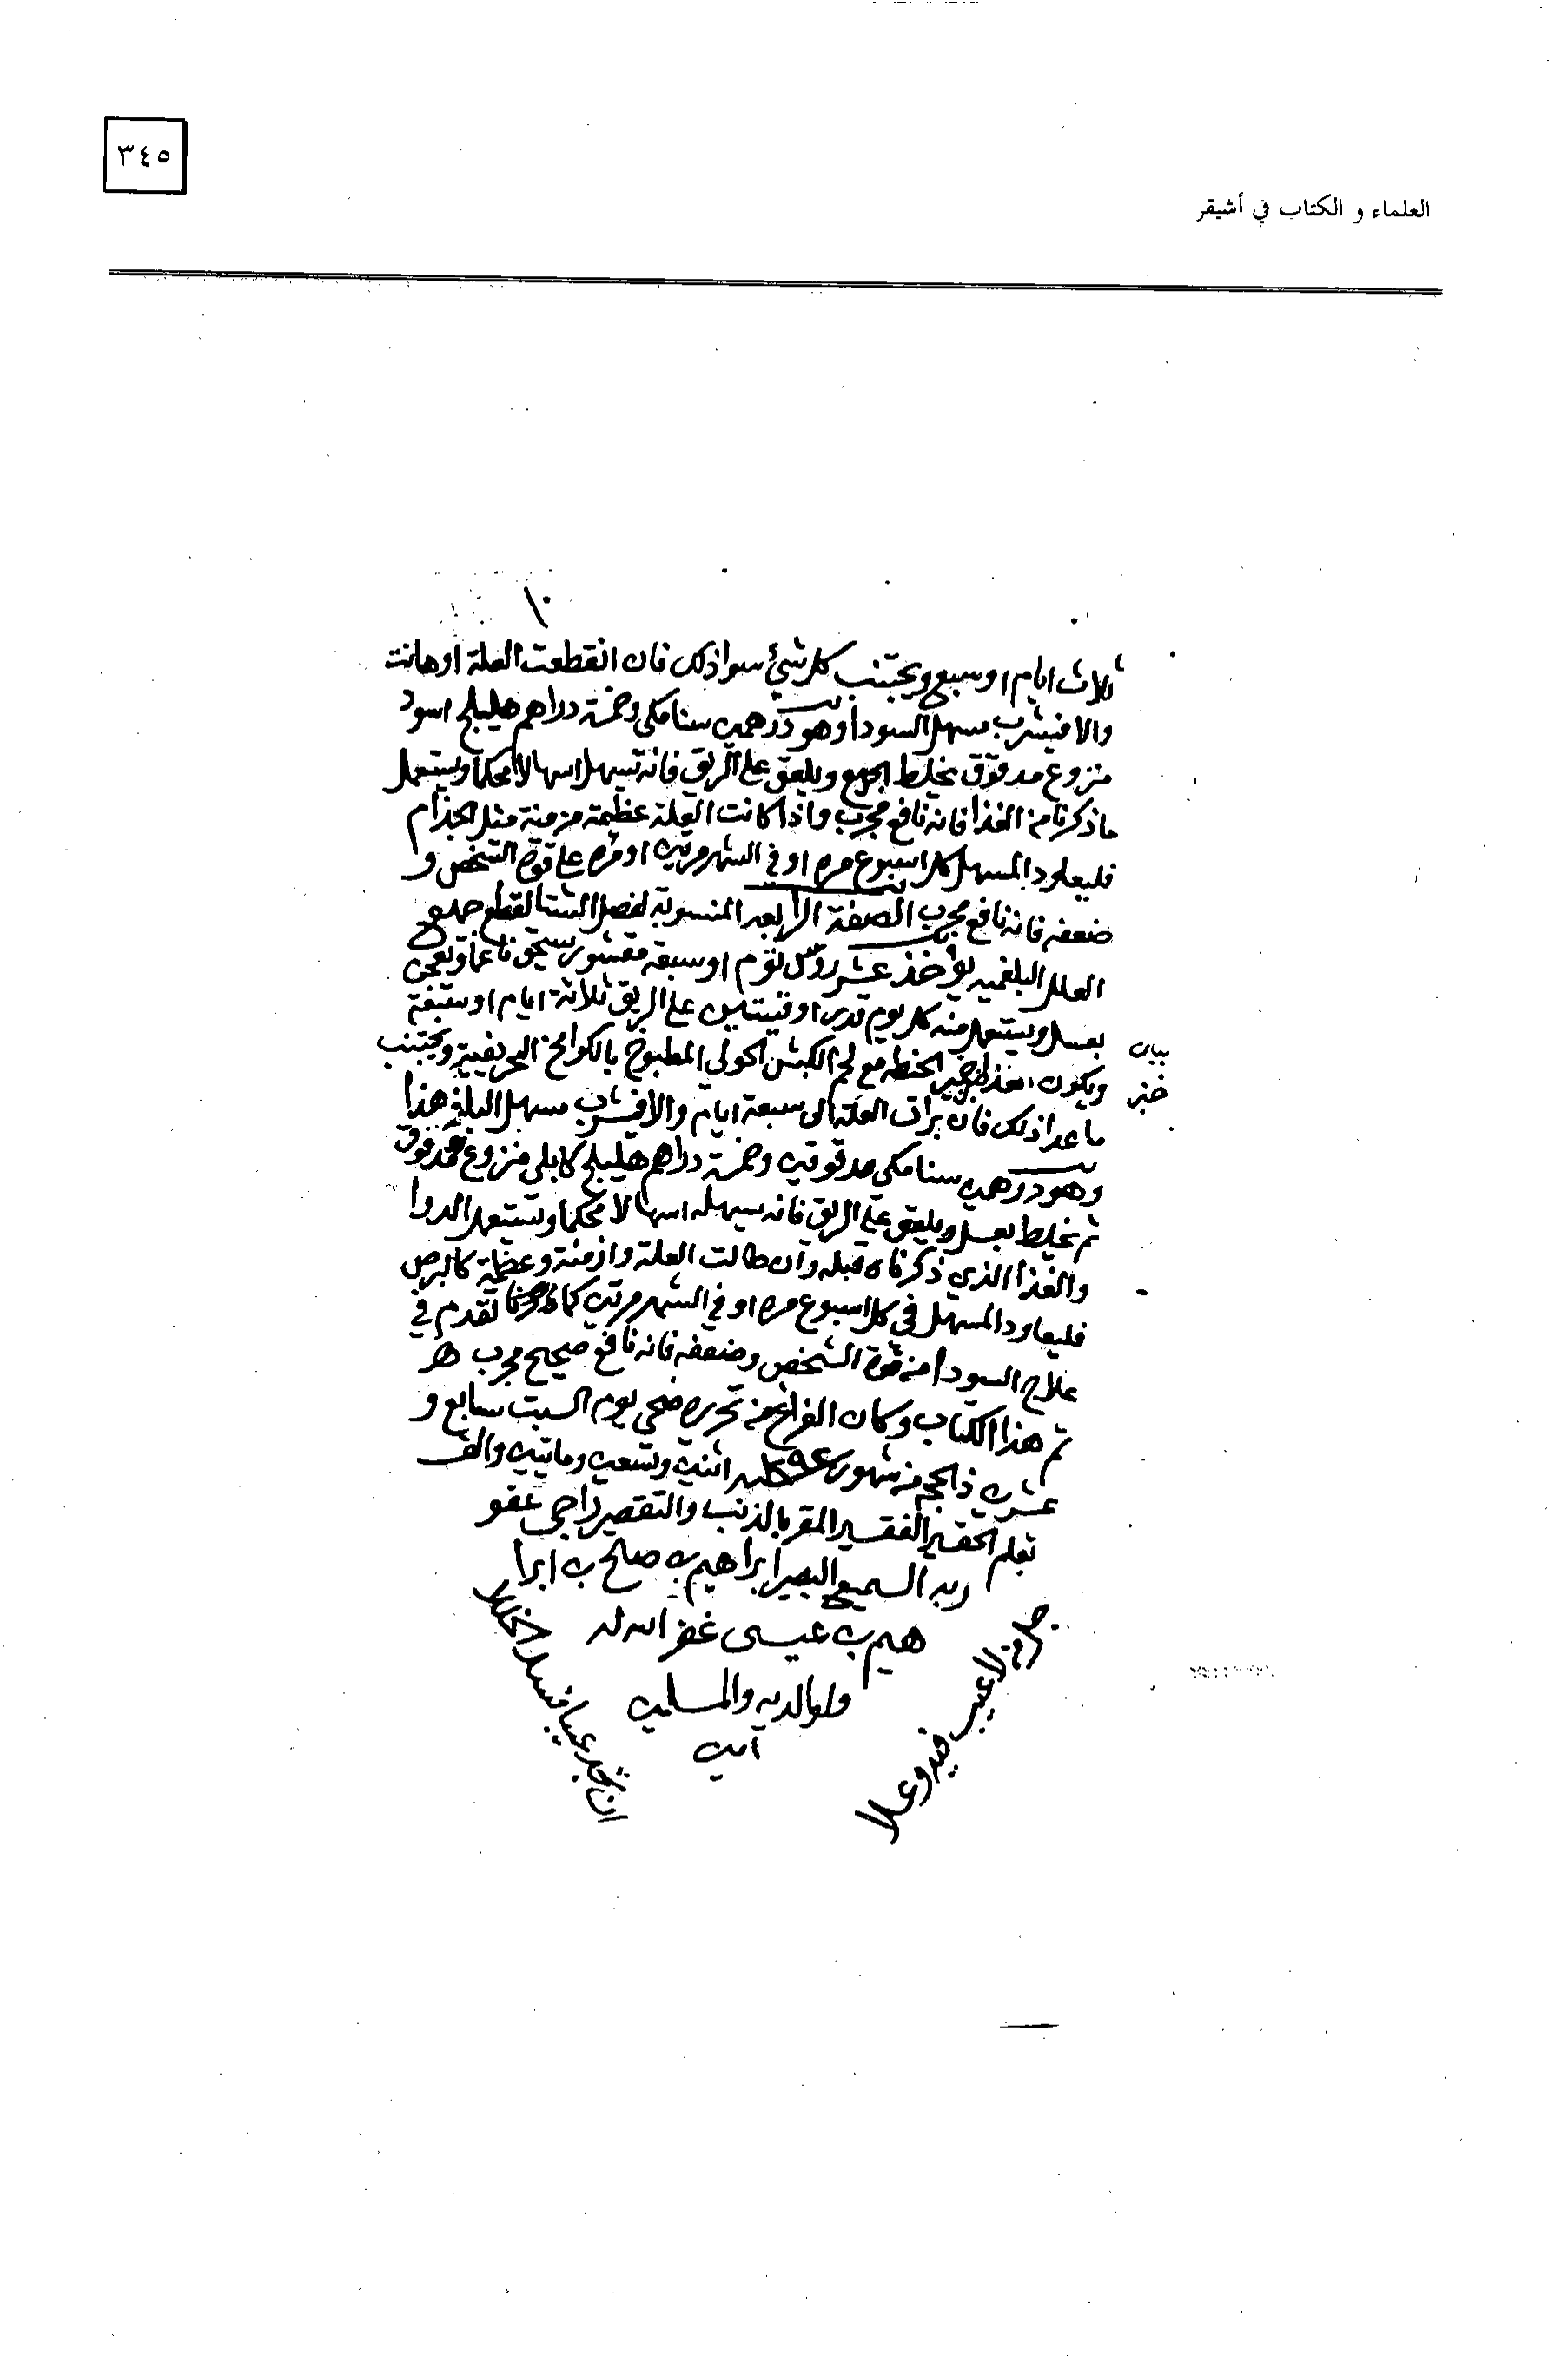 ٣٤٥
العلماء و الكتاب في أشيقر
١٠
ثلاث ايام او سبع ويجتنب كل شيئ سوا ذلك فان انقطعت العلة او هانت
والا فيشرب مسهل السودا وهو درهمين سنا مكي وخمسة دراهم هليلج اسود
منزوع مدقوق يخلط الجميع ويلعق على الريق فانه يسهل اسهالا محكما ويستعمل
ما ذكرنا من الغذا فانه نافع مجرب واذا كانت العلة عظيمة مزمنة مثل الجذام
فليعاود المسهل كل اسبوع مره او في الشهر مرتين او مره على قوة الشخص و
ضعفه فانه نافع مجرب الصفة الرابعه المنسوبة لفصل الشتا لقطع جميع
العلل البلغميه يؤخذ عشر روس ثوم او سبعة مقشور يسحق ناعما ويعجن
بعسل ويستعمل منه كل يوم قدر اوقيتين على الريق ثلاثة ايام او سبعة
ويكون الغذا خبز الحنطه مع لحم الكبش الحولي المطبوخ بالكوامخ الحريفية ويجتنب
بيان
خبز
ما عدا ذلك فان برات العلة الى سبعة ايام والا فيشرب مسهل البلغم هذا
وهو درهمين سنا مكي مدقوقين وخمسة دراهم هليلج كابلي منزوع مدقوق
ثم يخلط بعسل ويلعق على الريق فانه يسهله اسهالا محكما ويستعمل الدوا
والغذا الذي ذكرناه قبله وان طالت العلة وازمنة وعظمة كالبرص
فليعاود المسهل في كل اسبوع مره او في الشهر مرتين كما تقدم في
علاج السودا من قوة الشخص وضعفه فانه نافع صحيح مجرب هـ
تم هذا الكتاب وكان الفراغ من تحريره ضحى يوم السبت سابع و
عشرين ذا الحجه من شهور اثنين وتسعين وماتين والف
بقلم الحقير الفقير المقر بالذنب والتقصير راجي عفو
ربه السميع البصير ابراهيم بن صالح بن ابرا
هيم بن عيسى غفر الله له
ولوالديه والمسلمين
آمين
ان تجد عيبا فسد الخللا
جل من لا عيب فيه وعلا